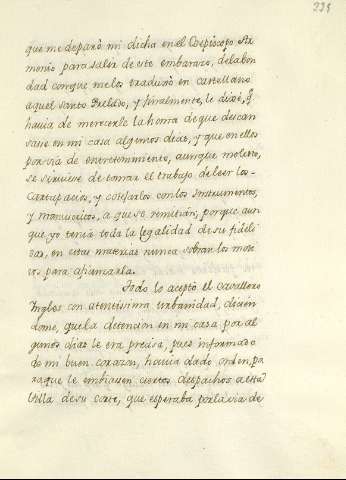 que me deparò mi dicha en el Obpiscopo Ar
monio para salir de este embarazo, de la bon
dad con que me los traduxo en castellano
aquel santo Prelado; y finalmente, le dixe, q.
havia de merecerle la honra de que descan
sase en mi casa algunos dias, y que en ellos
por via de entretenimiento, aunque molesto,
se sirviese de tomar el trabajo de leer los
Cartapacios, y cotejarlos con los Instrumentos,
y manuscritos, a que se remitian; porque aun
que yo tenia toda la legalidad de su fideli
dad, en estas materias nunca sobran los moti
vos para afianzarla.
Todo lo aceptò el Cavallero
Ingles con atentissima urbanidad, dicien
dome, que la detencion en mi casa por al
gunos dias le era precisa, pues informado
de mi buen corazon, havia dado orden, pa
ra que le embiasen ciertos despachos a esta
Villa de su corte, que esperaba por la via de